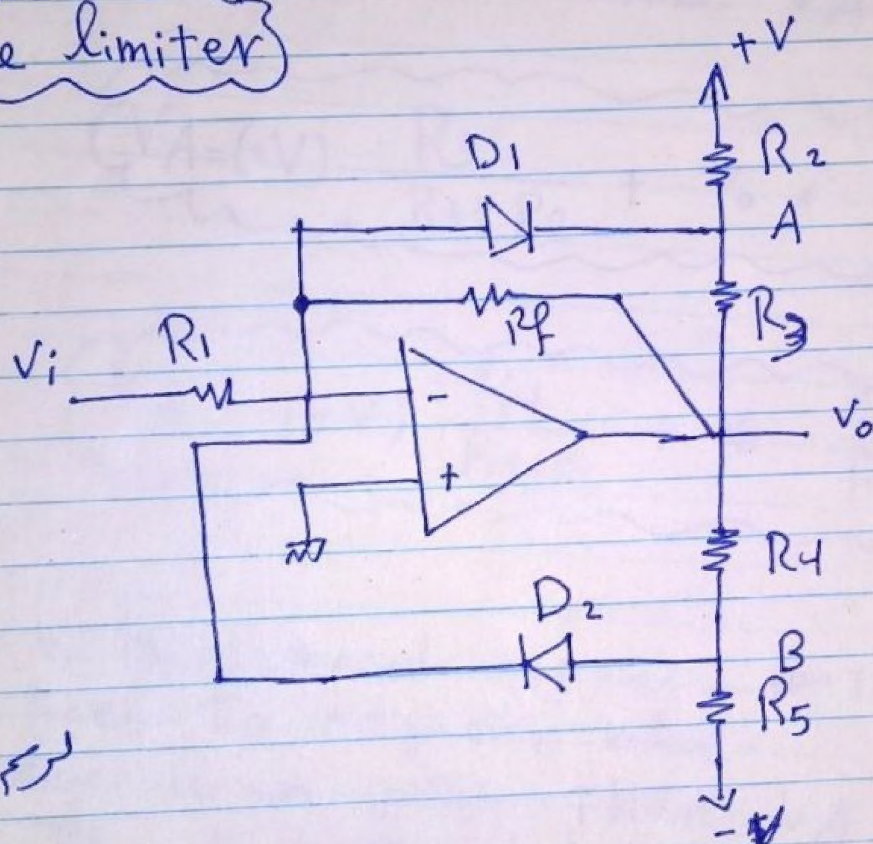 e limiter
+V
R2
D1
A
Rf
R3
R1
Vi
-
Vo
+
R4
D2
B
R5
-V